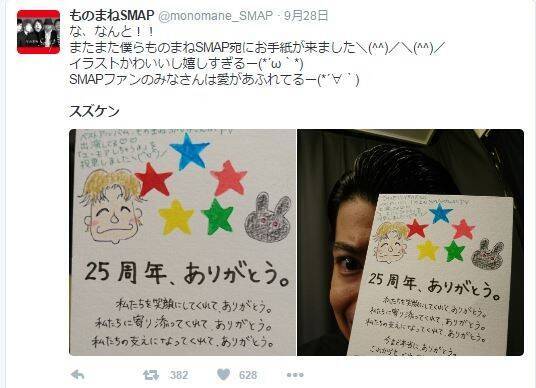 ものまねSMAP @monomane_SMAP・9月28日
な、なんと！！
またまた僕らものまねSMAP宛にお手紙が来ました＼(^^)／＼(^^)／
イラストかわいいし嬉しすぎるー(*´ω｀*)
SMAPファンのみなさんは愛があふれてるー(*´∀｀)
スズケン
出演してる♡♡
投票しました
25周年、ありがとう。
私たちを笑顔にしてくれて、ありがとう。
私たちに寄り添ってくれて、ありがとう。
私たちの支えになってくれて、ありがとう。
25周年、ありがとう。
私たちを笑顔にしてくれて、ありがとう。
私たちに寄り添ってくれて、ありがとう。
私たちの支えになってくれて、ありがとう。
今まで本当に、ありがとう。
382
628